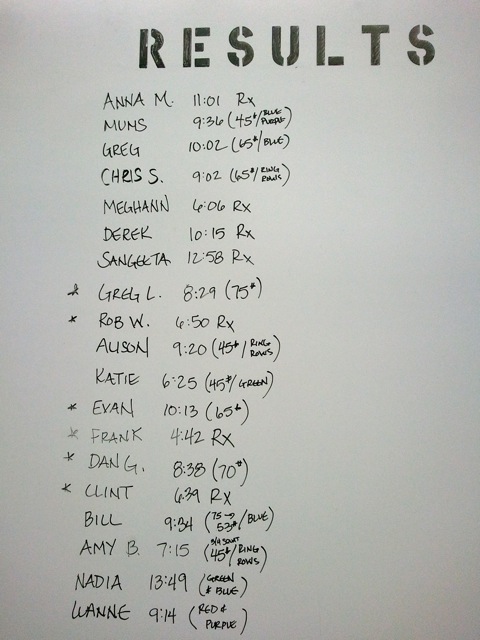 RESULTS
ANNA M. 11:01 Rx
MUMS 9:36 (45#/BLUE PURPLE)
GREG 10:02 (65#/BLUE)
CHRIS S. 9:02 (65#/RING ROWS)
MEGHANN 6:06 Rx
DEREK 10:15 Rx
SANGEETA 12:58 Rx
* GREG L. 8:29 (75#)
* ROB W. 6:50 Rx
ALISON 9:20 (45#/RING ROWS)
KATIE 6:25 (45#/GREEN)
* EVAN 10:13 (65#)
* FRANK 4:42 Rx
* DAN G. 8:38 (70#)
* CLINT 6:39 Rx
BILL 9:34 (75→53#/BLUE)
AMY B. 7:15 (45#/RING ROWS)
NADIA 13:49 (GREEN & BLUE)
LUANNE 9:14 (RED & PURPLE)